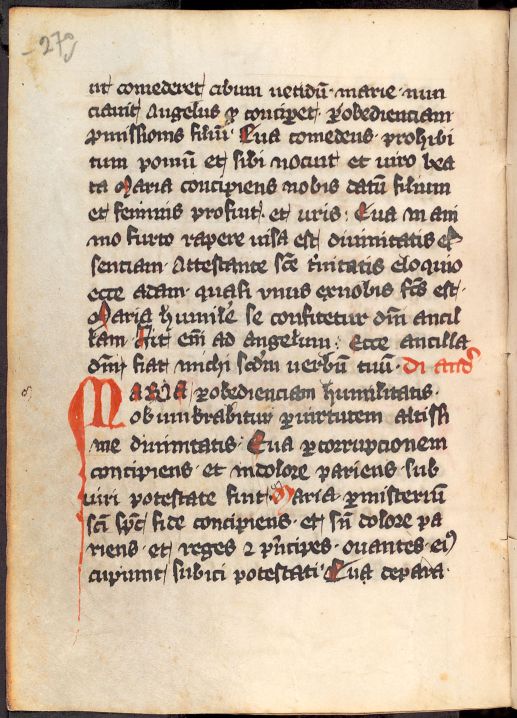 279
ut comederet cibum uetidū · marie nun
ciauit Angelus ꝙ conciꝑet · ꝑobedienciam
ꝓmissionis filiū · Eua comedens · prohibi
tum pomū et sibi nocuit et uiro bea
ta Maria concipiens nobis datū filium
et feminis profuit · et uiris : Eua in ani
mo furto rapere uisa est diuinitatis es
senciam · Attestante sc̄e t'nitatis eloquio
ecce adam · quasi vnus exnobis fc̄s est ·
Maria humile se confitetur dn̄i ancil
lam · Ait em̄ ad angelum : Ecce ancilla
dn̄i fiat michi scdm uerbū tuū :
MARIA ꝑobedienciam humilitatis ·
obumbrabitur ꝑuirtutem altissi
me diuinitatis · Eua ꝑcorrupcionem
concipiens · et indolore pariens · sub
uiri potestate fuit · Maria ꝑmisteriū
sc̄i sp̄c fide concipiens · et sn̄ dolore pa
riens · et reges ⁊ p'ncipes · ouantes ei9
cupiunt subici potestati · Eua depara ·